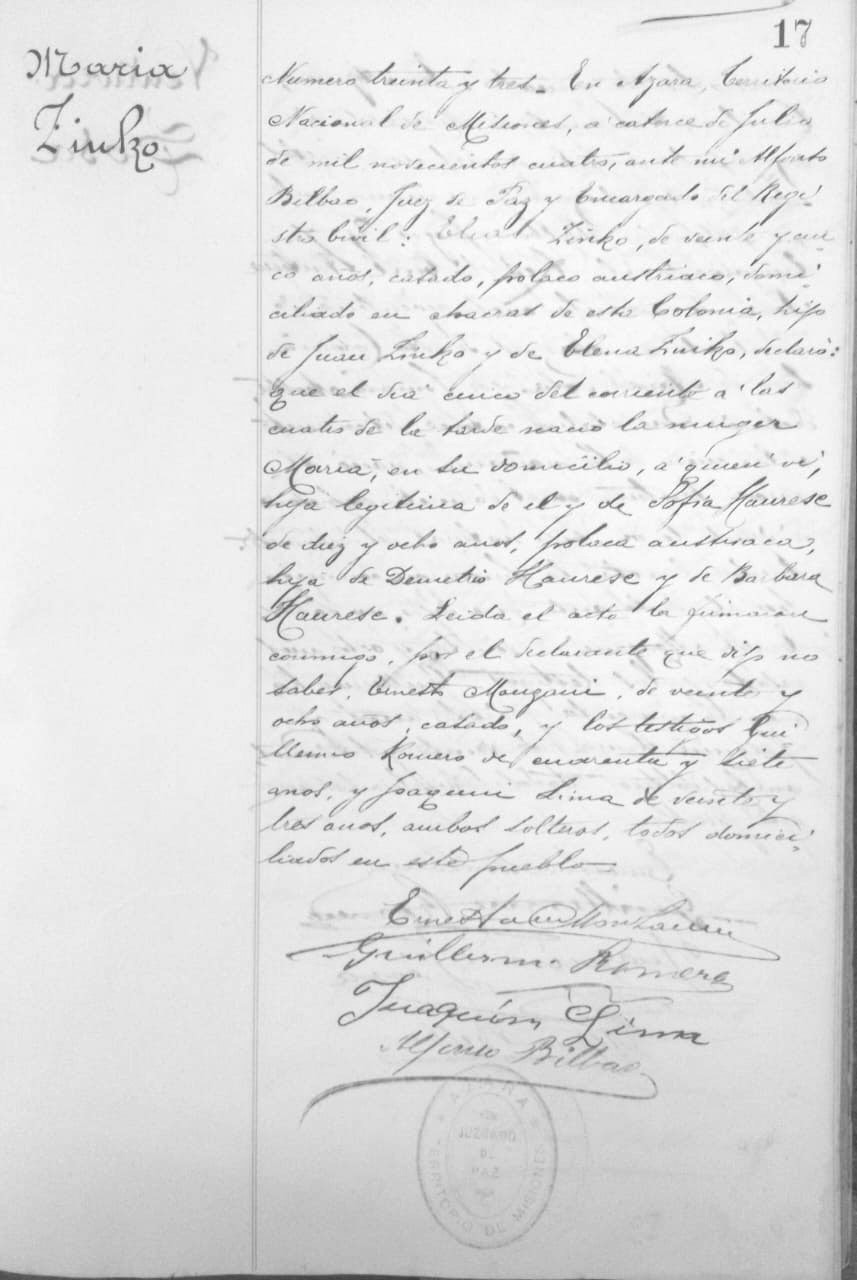 17
Maria
Zinko
Numero treinta y tres. En Azara, Territorio
Nacional de Misiones, a catorce de Julio
de mil novecientos cuatro, ante mi Alfonso
Bilbao, Juez de Paz y Encargado del Regi-
stro Civil: Elias Zinko, de veinte y cin-
co años, casado, polaco austriaco, domi-
ciliado en chacras de esta Colonia, hijo
de Juan Zinko y de Elena Zinko, declaró:
que el dia cinco del corriente a las
cuatro de la tarde nació la muger
Maria, en su domicilio, a quien vi,
hija legitima de el y de Sofia Haurese
de diez y ocho años, polaca austriaca,
hija de Demetrio Haurese y de Barbara
Haurese. Leida el acta la firmaron
conmigo, por el declarante que dijo no
saber, Ernesto, de veinte y
ocho años, casado, y los testigos Gui
llermo Romero de cuarenta y siete
anos, y Joaquin Lima de veinte y
tres anos, ambos solteros, todos domici-
liados en este pueblo
Guillermo Romero
Juaquín Lima
Alfonso Bilbao
AZARA
JUZGADO
DE
PAZ
TERRITORIO DE MISIONES